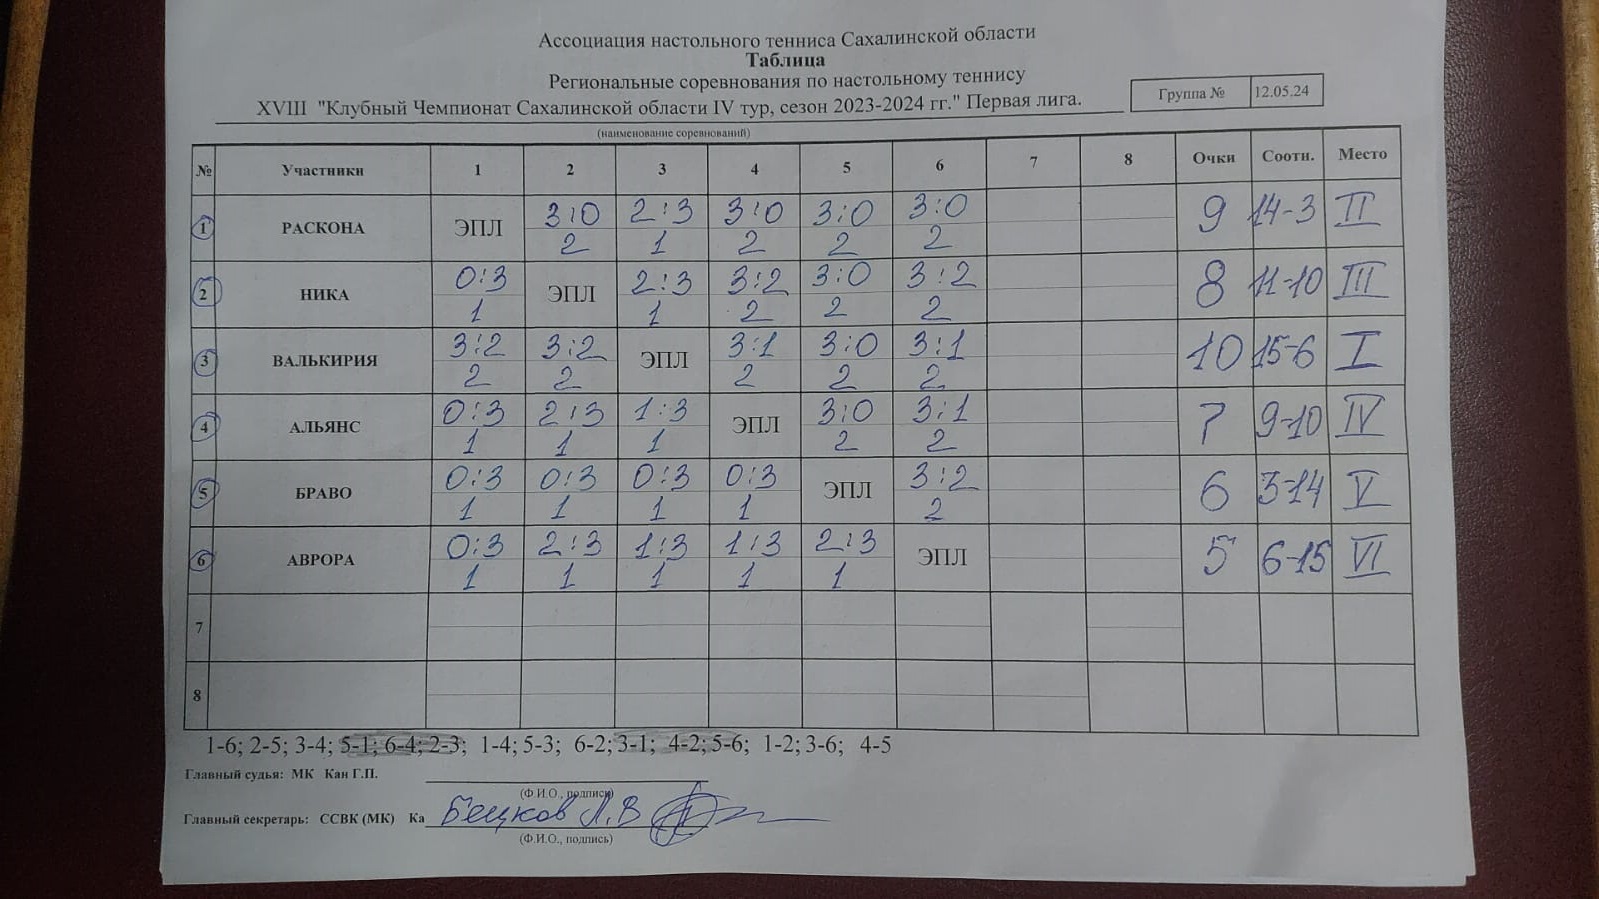 Ассоциация настольного тенниса Сахалинской области
Таблица
Региональные соревнования по настольному теннису
XVIII "Клубный Чемпионат Сахалинской области IV тур, сезон 2023-2024 гг." Первая лига.
Группа № 12.05.24
(наименование соревнований)
№ Участники 1 2 3 4 5 6 7 8 Очки Соотн. Место
1 РАСКОНА ЭПЛ 3:0 2:3 3:0 3:0 3:0 9 14-3 II
2 1 2 2 2
2 НИКА 0:3 ЭПЛ 2:3 3:2 3:0 3:2 8 11-10 III
1 1 2 2 2
3 ВАЛЬКИРИЯ 3:2 3:2 ЭПЛ 3:1 3:0 3:1 10 15-6 I
2 2 2 2 2
4 АЛЬЯНС 0:3 2:3 1:3 ЭПЛ 3:0 3:1 7 9-10 IV
1 1 1 2 2
5 БРАВО 0:3 0:3 0:3 0:3 ЭПЛ 3:2 6 3-14 V
1 1 1 1 2
6 АВРОРА 0:3 2:3 1:3 1:3 2:3 ЭПЛ 5 6-15 VI
1 1 1 1 1
7
8
1-6; 2-5; 3-4; 5-1; 6-4; 2-3; 1-4; 5-3; 6-2; 3-1; 4-2; 5-6; 1-2; 3-6; 4-5
Главный судья: МК Кан Г.П.
(Ф.И.О., подпись)
Главный секретарь: ССВК (МК) Ка Бецков Л.В
(Ф.И.О., подпись)